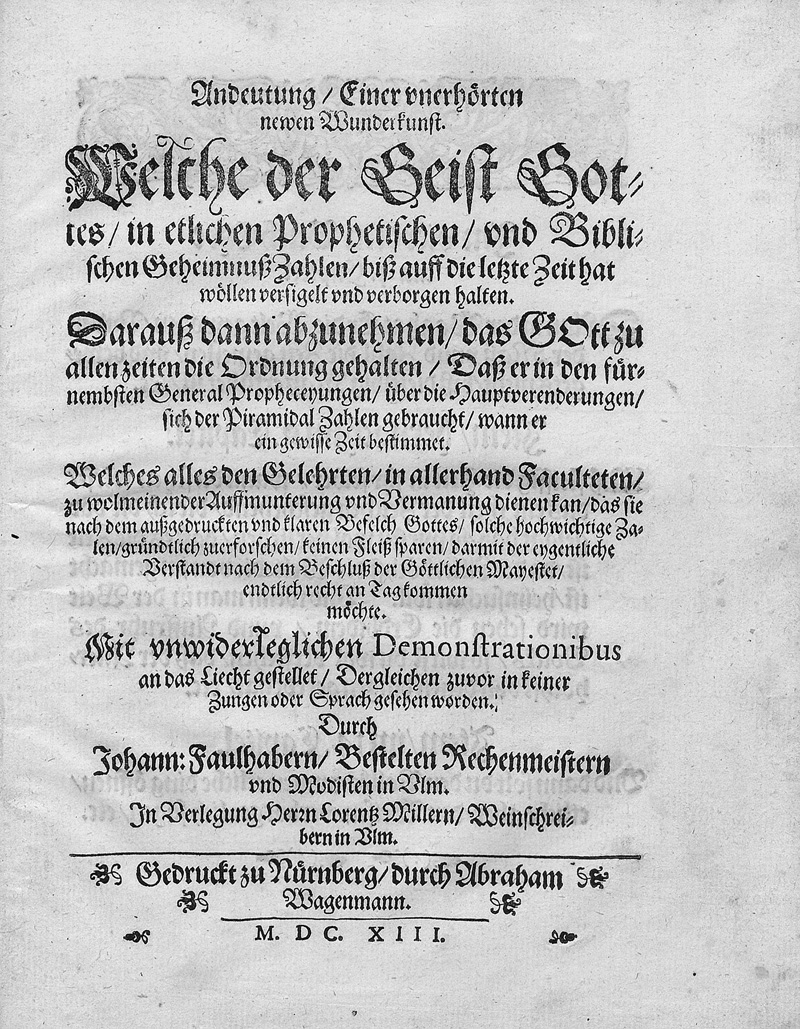 Andeutung / Einer vnerhörten
newen Wunderkunst.
Welche der Geist Got-
tes / in etlichen Prophetischen / vnd Bibli-
schen GeheimnußZahlen / biß auff die letzte Zeit hat
wöllen versigelt vnd verborgen halten.
Darauß dann abzunehmen / das GOtt zu
allen zeiten die Ordnung gehalten / Daß er in den für-
nembsten General Propheceyungen / über die Hauptverenderungen /
sich der Piramidal Zahlen gebraucht / wann er
ein gewisse Zeit bestimmet.
Welches alles den Gelehrten / in allerhand Faculteten /
zu wolmeinender Auffmunterung vnd Vermanung dienen kan / das sie
nach dem außgedruckten vnd klaren Befelch Gottes / solche hochwichtige Za-
len / gründtlich zuerforschen / keinen Fleiß sparen / darmit der eygentliche
Verstandt nach dem Beschluß der Göttlichen Mayestet /
endtlich recht an Tag kommen
möchte.
Mit vnwiderleglichen Demonstrationibus
an das Liecht gestellet / Dergleichen zuvor in keiner
Zungen oder Sprach gesehen worden.
Durch
Johann: Faulhabern / Bestelten Rechenmeistern
vnd Modisten in Vlm.
In Verlegung Herrn Lorentz Millern / Weinschrei-
bern in Vlm.
Gedruckt zu Nürnberg / durch Abraham
Wagenmann.
M. D C. XIII.